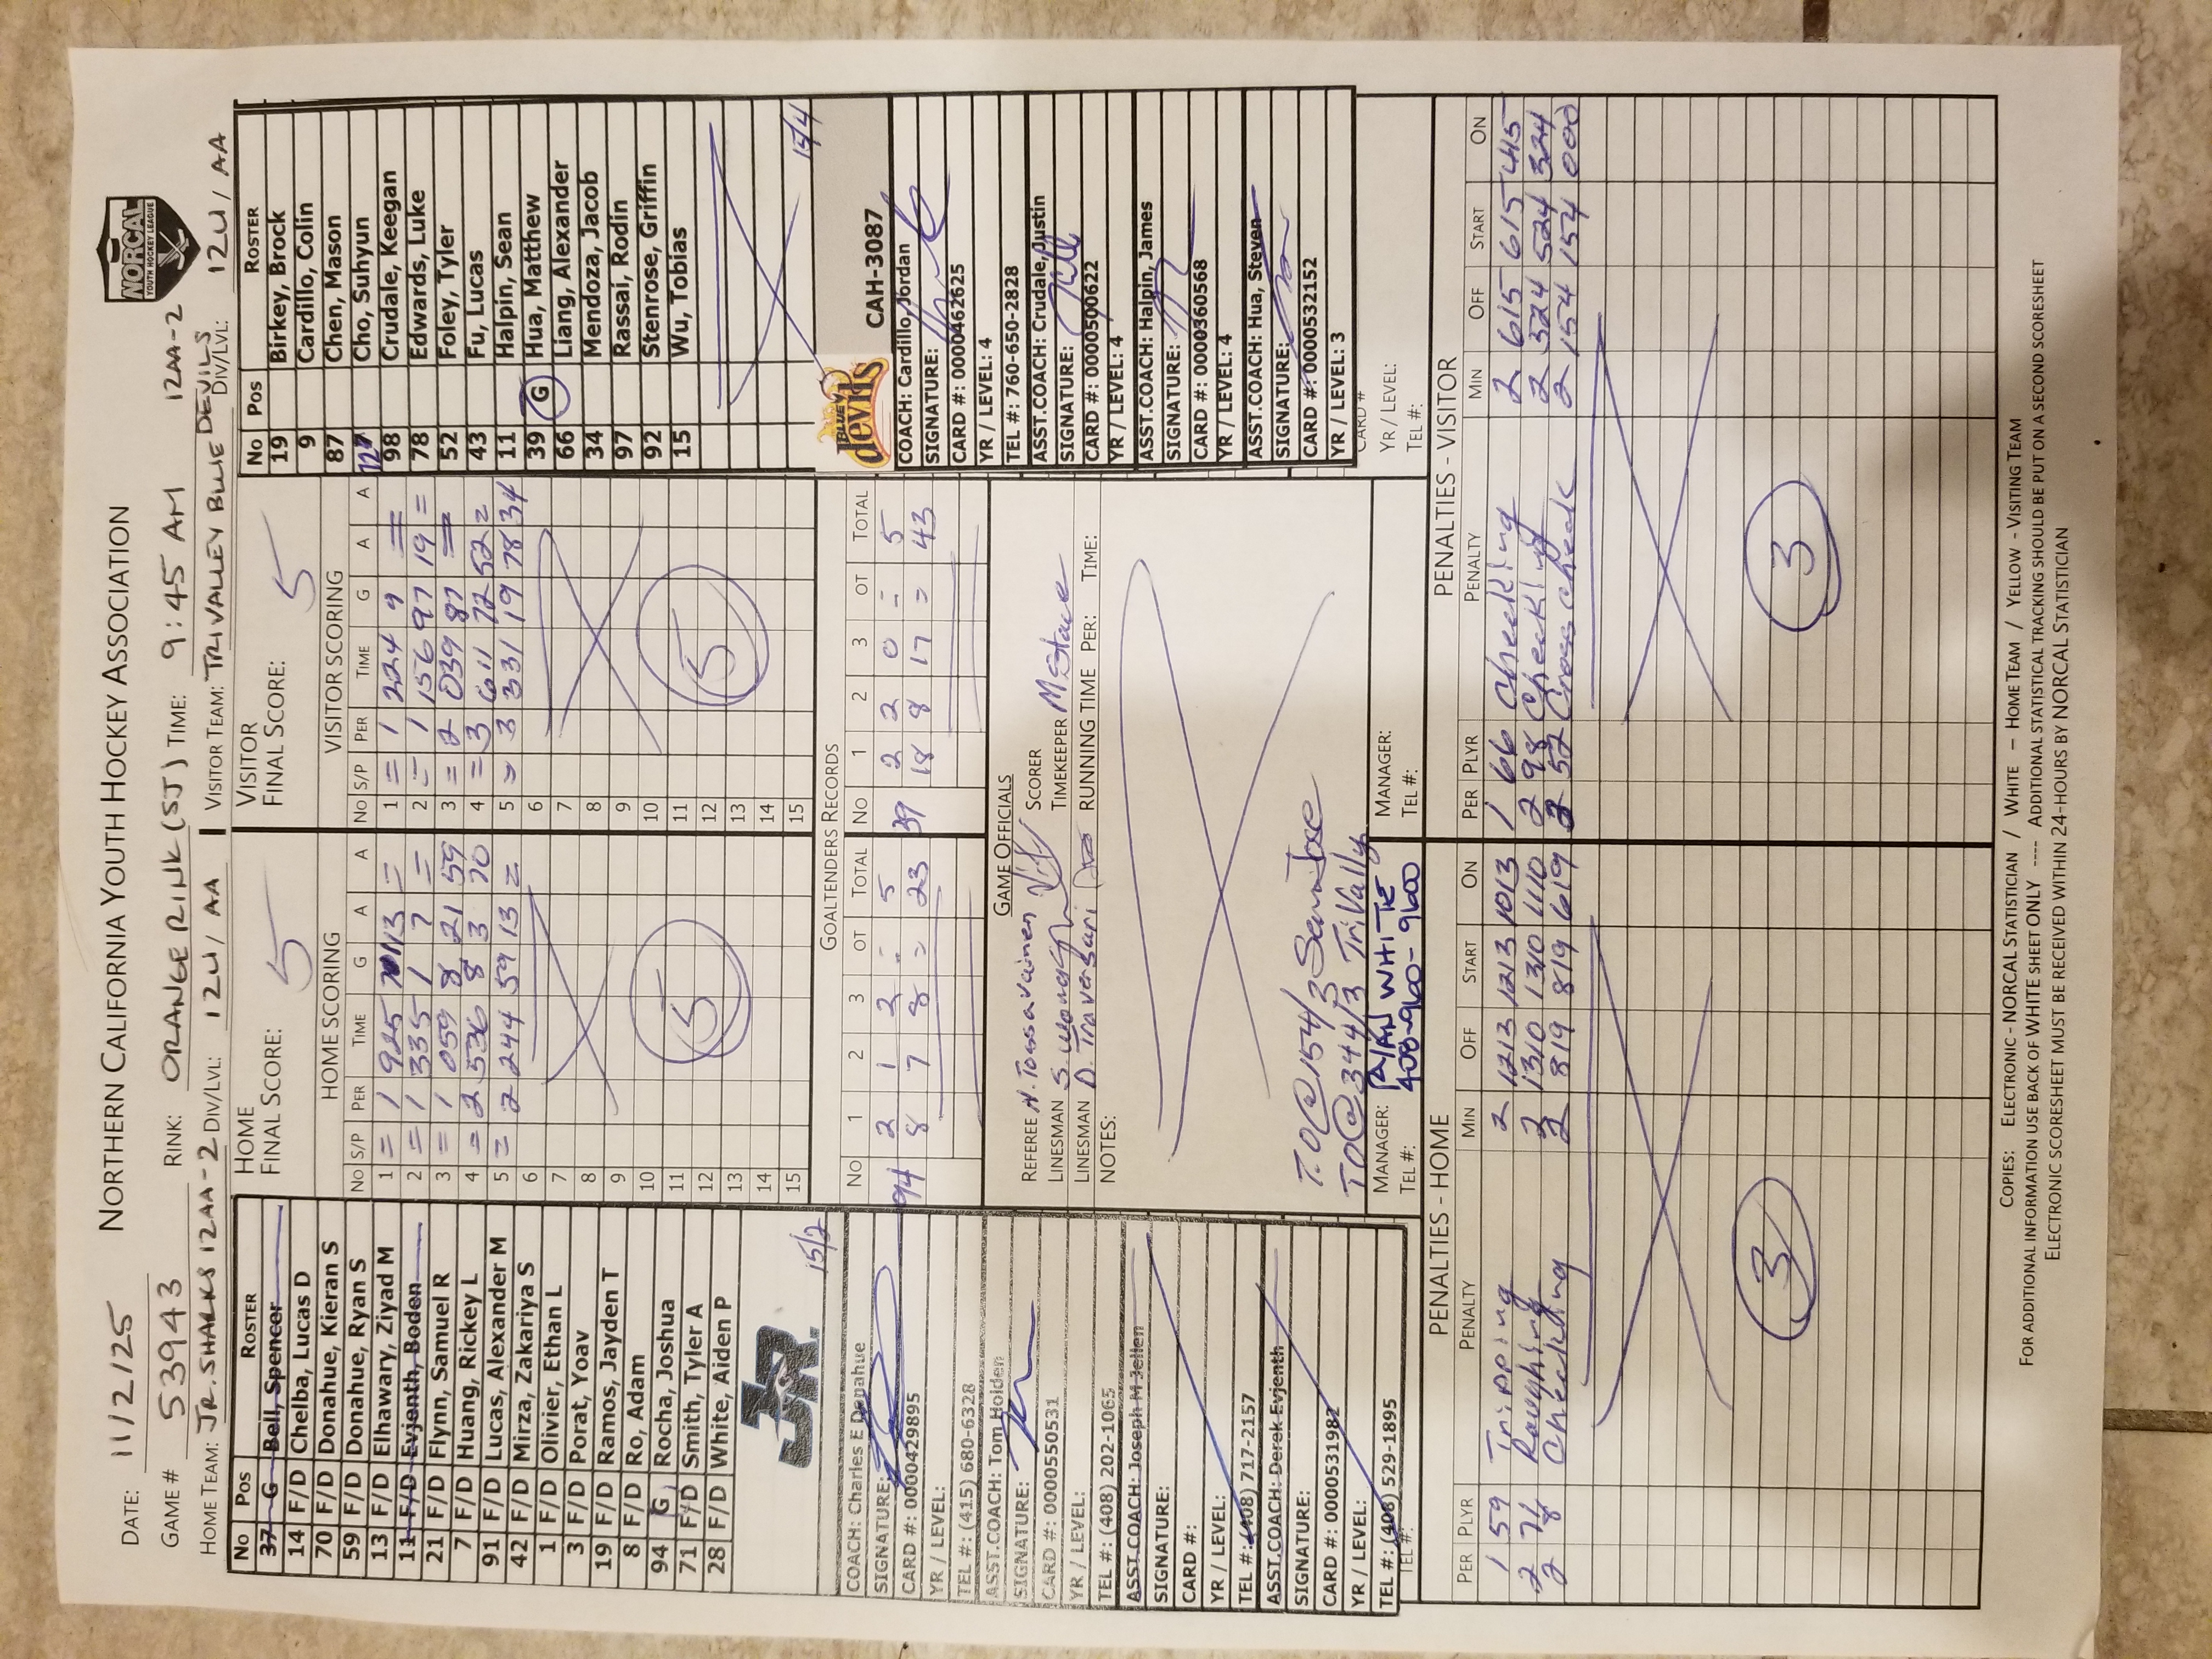 NORTHERN CALIFORNIA YOUTH HOCKEY ASSOCIATION
NORCAL
YOUTH HOCKEY LEAGUE
DATE: 11/2/25
GAME # 53943 RINK: ORANGE RINK (SJ) TIME: 9:45 AM 12AA-2
HOME TEAM: JR. SHARKS 12AA-2 DIV/LVL: 12U/AA VISITOR TEAM: TRIVALLEY BLUE DEVILS DIV/LVL: 12U/AA
No Pos ROSTER
37 G Bell, Spencer
14 F/D Chelba, Lucas D
70 F/D Donahue, Kieran S
59 F/D Donahue, Ryan S
13 F/D Elhawary, Ziyad M
11 F/D Evjenth, Boden
21 F/D Flynn, Samuel R
7 F/D Huang, Rickey L
91 F/D Lucas, Alexander M
42 F/D Mirza, Zakariya S
1 F/D Olivier, Ethan L
3 F/D Porat, Yoav
19 F/D Ramos, Jayden T
8 F/D Ro, Adam
94 G Rocha, Joshua
71 F/D Smith, Tyler A
28 F/D White, Aiden P
JR.
15/2
COACH: Charles E Donahue
SIGNATURE:
CARD #: 0000429895
YR / LEVEL:
TEL #: (415) 680-6328
ASST.COACH: Tom Holden
SIGNATURE:
CARD #: 0000550531
YR / LEVEL:
TEL #: (408) 202-1065
ASST.COACH: Joseph M Jellen
SIGNATURE:
CARD #:
YR / LEVEL:
TEL #: (408) 717-2157
ASST.COACH: Derek Evjenth
SIGNATURE:
CARD #: 0000531982
YR / LEVEL:
TEL #: (408) 529-1895
TEL #:
HOME
FINAL SCORE: 5
HOME SCORING
No S/P PER TIME G A A
1 = 1 925 13 =
2 = 1 335 1 7 =
3 = 1 059 8 21 59
4 = 2 536 8 3 70
5 = 2 244 59 13 =
6
7
8
9
10
11
12
13
14
15
5
VISITOR
FINAL SCORE: 5
VISITOR SCORING
No S/P PER TIME G A A
1 = 1 224 9 =
2 = 1 156 97 19 =
3 = 2 039 87 =
4 = 3 611 72 52 =
5 = 3 331 19 78 34
6
7
8
9
10
11
12
13
14
15
5
GOALTENDERS RECORDS
No 1 2 3 OT TOTAL No 1 2 3 OT TOTAL
94 2 1 2 - 5 39 2 2 0 - 5
8 7 8 = 23 18 8 17 = 43
GAME OFFICIALS
REFEREE N. Tossavainen SCORER
LINESMAN S. Wong TIMEKEEPER M Stace
LINESMAN D. Traversari RUNNING TIME PER: TIME:
NOTES:
T.O@154/3 San Jose
TO@344/3 TriVally
MANAGER: RYAN WHITE
TEL #: 408-960-9600
MANAGER:
TEL #:
No Pos ROSTER
19 Birkey, Brock
9 Cardillo, Colin
87 Chen, Mason
72 Cho, Suhyun
98 Crudale, Keegan
78 Edwards, Luke
52 Foley, Tyler
43 Fu, Lucas
11 Halpin, Sean
39 G Hua, Matthew
66 Liang, Alexander
34 Mendoza, Jacob
97 Rassai, Rodin
92 Stenrose, Griffin
15 Wu, Tobias
15/4
BLUE devils CAH-3087
COACH: Cardillo, Jordan
SIGNATURE:
CARD #: 0000462625
YR / LEVEL: 4
TEL #: 760-650-2828
ASST.COACH: Crudale, Justin
SIGNATURE:
CARD #: 0000500622
YR / LEVEL: 4
ASST.COACH: Halpin, James
SIGNATURE:
CARD #: 0000360568
YR / LEVEL: 4
ASST.COACH: Hua, Steven
SIGNATURE:
CARD #: 0000532152
YR / LEVEL: 3
CARD #
YR / LEVEL:
TEL #:
PENALTIES - HOME
PER PLYR PENALTY MIN OFF START ON
1 59 Tripping 2 1213 1213 1013
2 71 Roughing 2 1310 1310 1110
2 8 Checking 2 819 819 619
3
PENALTIES - VISITOR
PER PLYR PENALTY MIN OFF START ON
1 66 Checking 2 615 615 415
2 98 Checking 2 524 524 324
3 52 Cross check 2 154 154 000
3
COPIES: ELECTRONIC - NORCAL STATISTICIAN / WHITE – HOME TEAM / YELLOW - VISITING TEAM
FOR ADDITIONAL INFORMATION USE BACK OF WHITE SHEET ONLY ---- ADDITIONAL STATISTICAL TRACKING SHOULD BE PUT ON A SECOND SCORESHEET
ELECTRONIC SCORESHEET MUST BE RECEIVED WITHIN 24-HOURS BY NORCAL STATISTICIAN